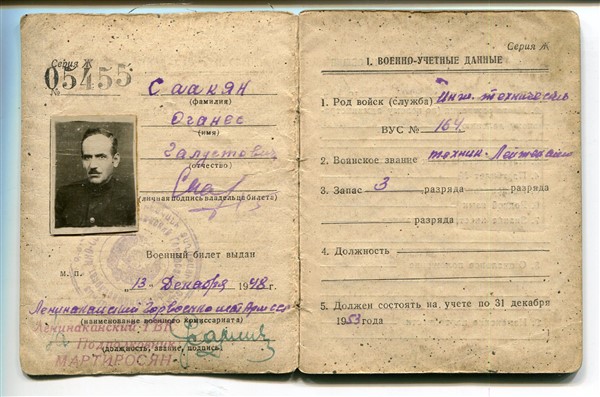 Серия Ж
05455
№
Саакян
(фамилия)
Оганес
(имя)
Галустович
(отчество)
(личная подпись владельца билета)
Военный билет выдан
м. п.
„13„ Декабря 1948 г.
Ленинаканский Горвоенкомат Арм.ССР
(наименование военного комиссариата)
Ленинаканский ГВК
Подполковник
МАРТИРОСЯН
(должность, звание, подпись)
Серия Ж
I. ВОЕННО-УЧЕТНЫЕ ДАННЫЕ
1. Род войск (служба) Инж.
ВУС № 164
2. Воинское звание техник-Лейтенант
3. Запас 3 разряда разряда
разряда
4. Должность
5. Должен состоять на учете по 31 декабря
1953 года